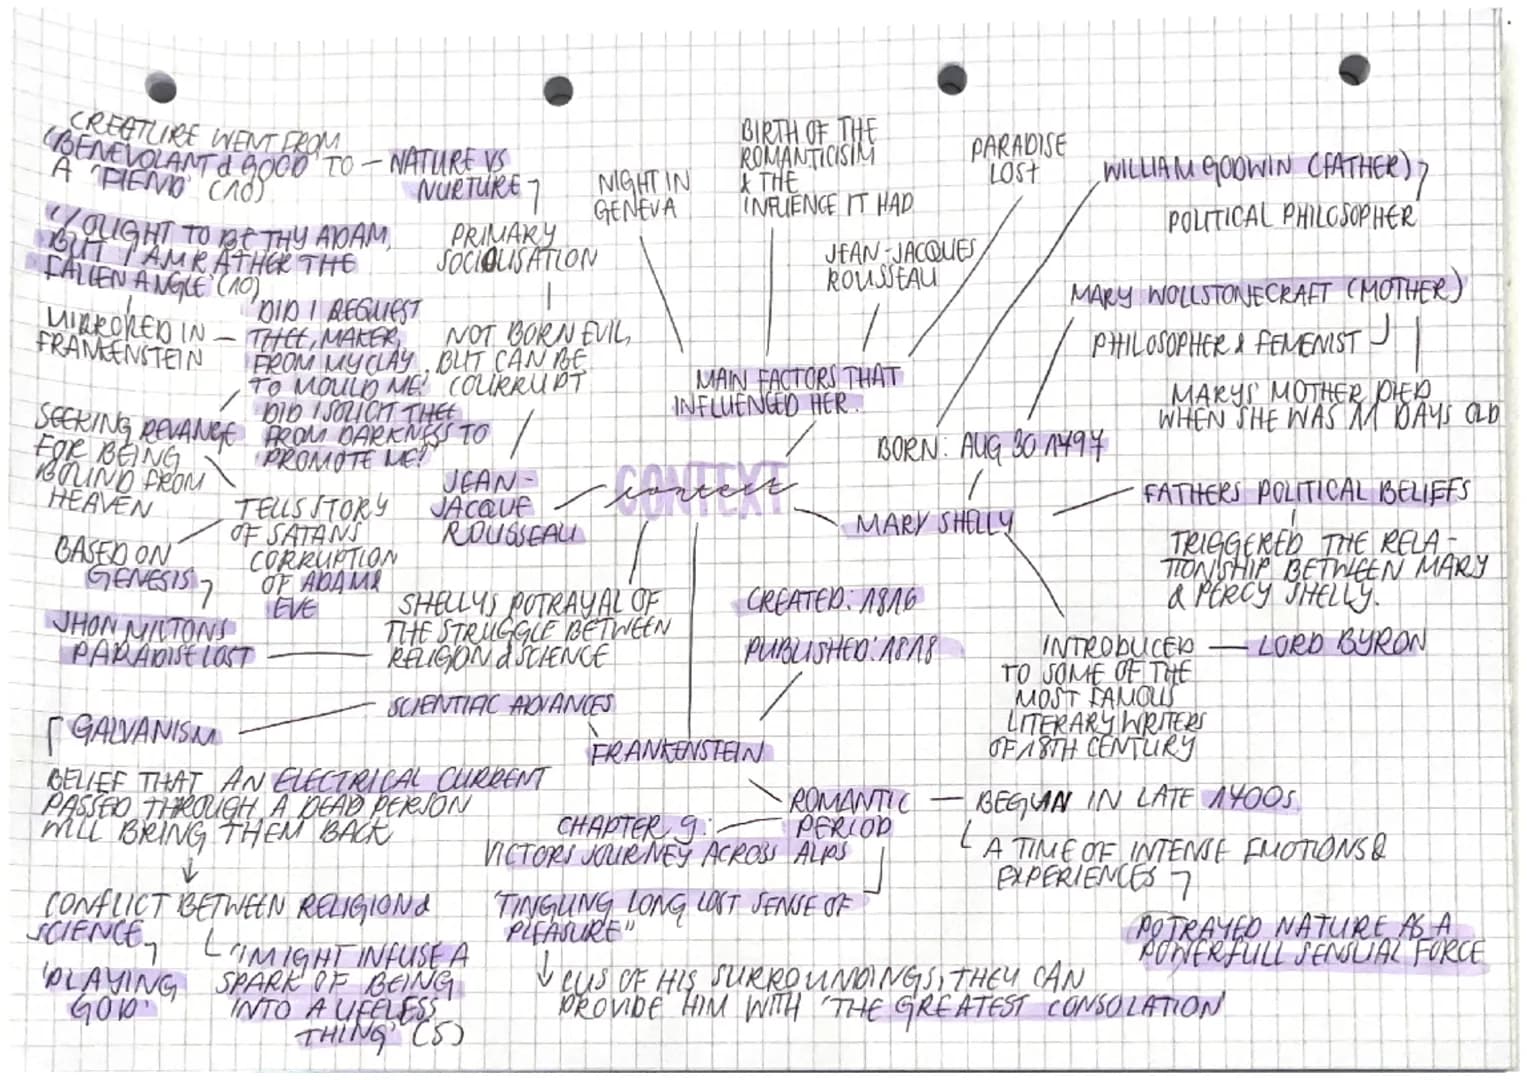 CREATURE WENT FROM
"BENEVOLANT & GOOD" TO — NATURE VS
A 'FIEND' (10)
NURTURE
"I OUGHT TO BE THY ADAM,
BUT I AM RATHER THE
FALLEN ANGLE" (10)
PRIMARY
SOCIOLISATION
NOT BORN EVIL,
BUT CAN BE
COURRUPT
JEAN-
JACQUE
ROUSSEAU
MIRRORED IN
FRANKENSTEIN
'DID I REQUEST
THEE, MAKER,
FROM MY CLAY
TO MOULD ME?
DID I SOLICIT THEE
FROM DARKNESS TO
PROMOTE ME?'
SEEKING REVANGE
FOR BEING
BOUND FROM
HEAVEN
TELLS STORY
OF SATANS
CORRUPTION
OF ADAM &
EVE
BASED ON
GENESIS
JHON MILTONS
PARADISE LOST
SHELLYS POTRAYAL OF
THE STRUGGLE BETWEEN
RELIGION & SCIENCE
NIGHT IN
GENEVA
BIRTH OF THE
ROMANTICISIM
& THE
INFLUENCE IT HAD
JEAN-JACQUES
ROUSSEAU
PARADISE
LOST
MAIN FACTORS THAT
INFLUENCED HER.
CONTEXT
context
WILLIAM GODWIN (FATHER)
POLITICAL PHILOSOPHER
MARY WOLLSTONECRAFT (MOTHER)
PHILOSOPHER & FEMENIST
MARYS' MOTHER DIED
WHEN SHE WAS 11 DAYS OLD
BORN: AUG 30 1797
MARY SHELLY
FATHERS POLITICAL BELIEFS
TRIGGERED THE RELA-
TIONSHIP BETWEEN MARY
& PERCY SHELLY.
INTRODUCED — LORD BYRON
TO SOME OF THE
MOST FAMOUS
LITERARY WRITERS
OF 18TH CENTURY
CREATED: 1816
PUBLISHED: 1818
SCIENTIFIC ADVANCES
FRANKENSTEIN
GALVANISM
BELIEF THAT AN ELECTRICAL CURRENT
PASSED THROUGH A DEAD PERSON
WILL BRING THEM BACK
CONFLICT BETWEEN RELIGION &
SCIENCE
'PLAYING
GOD'
"I MIGHT INFUSE A
SPARK OF BEING
INTO A LIFELESS
THING' (5)
ROMANTIC — BEGUN IN LATE 1700s
PERIOD
A TIME OF INTENSE EMOTIONS &
EXPERIENCES
POTRAYED NATURE AS A
POWERFULL SENSUAL FORCE
CHAPTER 9:
VICTORS JOURNEY ACROSS ALPS
'TINGLING LONG LOST SENSE OF
PLEASURE"
CUS OF HIS SURROUNDINGS, THEY CAN
PROVIDE HIM WITH 'THE GREATEST CONSOLATION